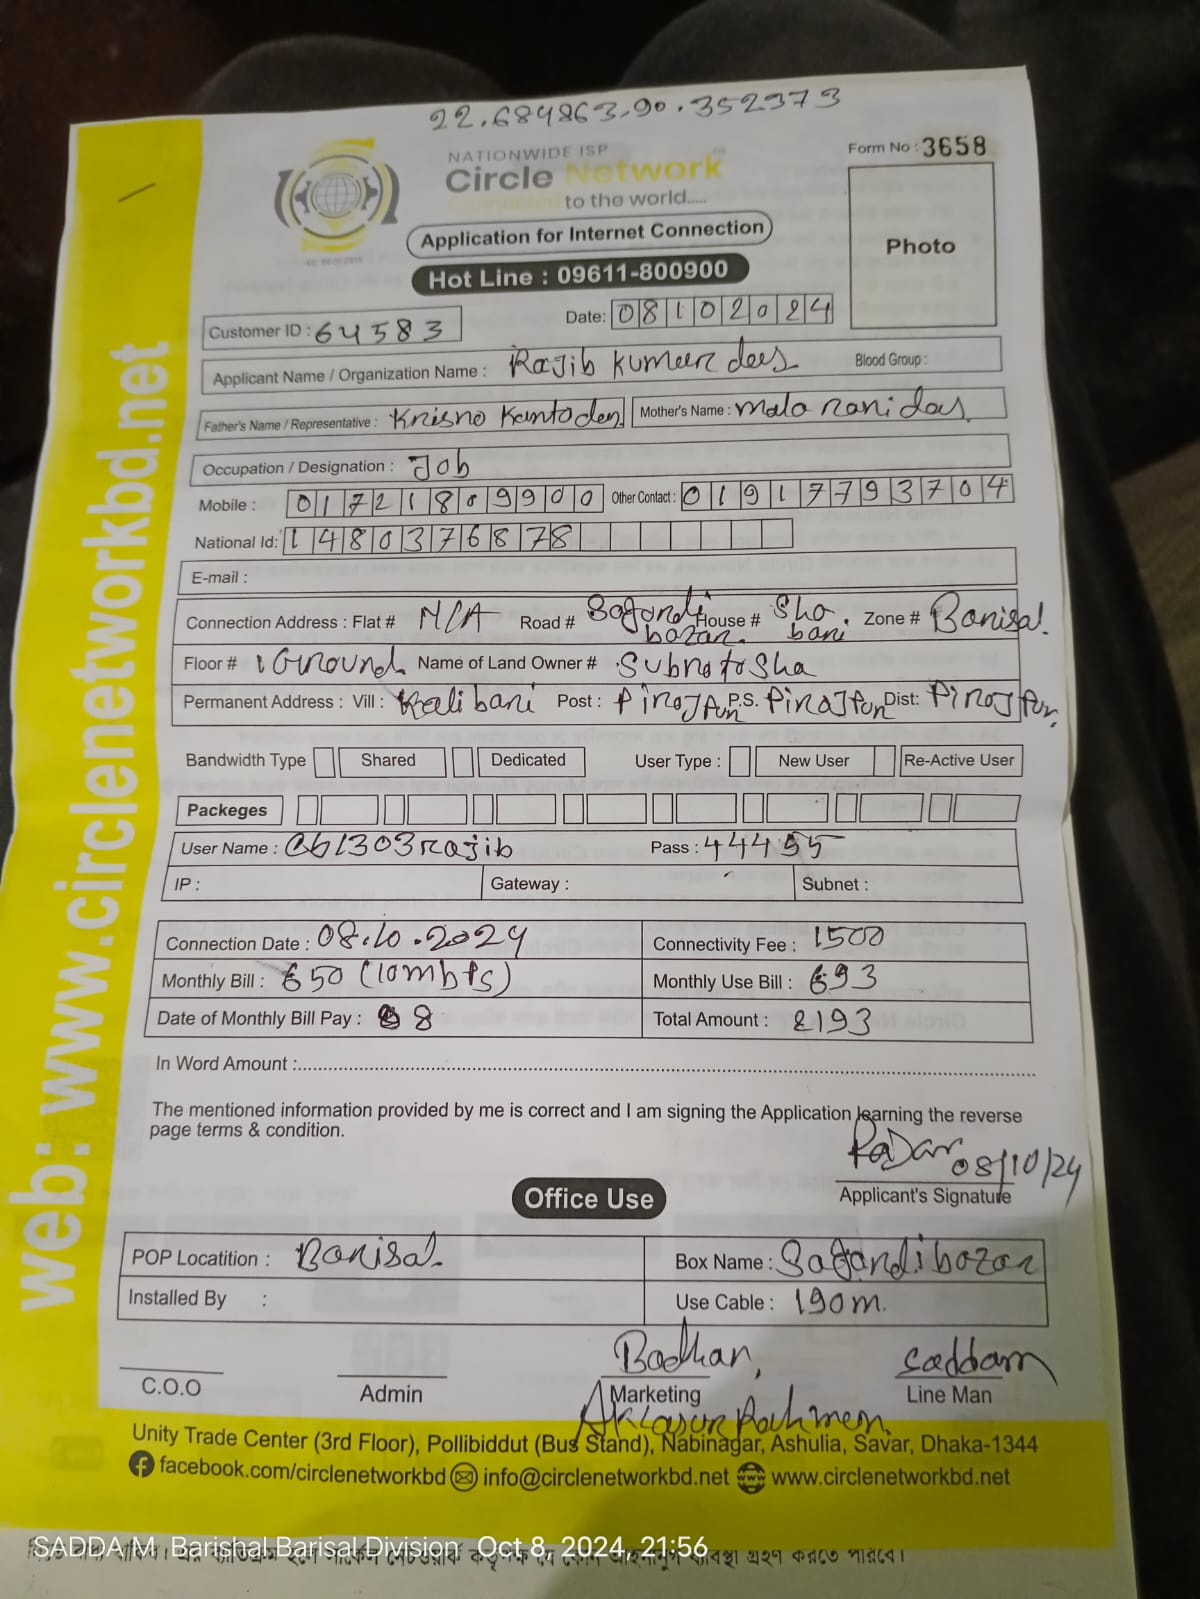 22.684863,90.352373
NATIONWIDE ISP
Circle Network
Connected to the world.....
Form No : 3658
Photo
Application for Internet Connection
Hot Line : 09611-800900
Customer ID : 64583
Date: 08102024
Applicant Name / Organization Name : Rajib Kumar das
Blood Group :
Father's Name / Representative : Krisno Kanto das
Mother's Name : Mala rani das.
Occupation / Designation : Job
Mobile : 01721809900
Other Contact : 01917793704
National Id: 1480376878
E-mail :
Connection Address : Flat # N/A Road # Sagardi bazar. House # Sha bari. Zone # Barisal.
Floor # Ground Name of Land Owner # Subroto Sha
Permanent Address : Vill : Kalibari Post : Pirojpur P.S. Pirojpur Dist: Pirojpur.
Bandwidth Type Shared Dedicated User Type : New User Re-Active User
Packeges
User Name : cb1303rajib Pass : 444555
IP : Gateway : Subnet :
Connection Date : 08.10.2024 Connectivity Fee : 1500
Monthly Bill : 650 (10mbps) Monthly Use Bill : 693
Date of Monthly Bill Pay : 8 Total Amount : 2193
In Word Amount :
The mentioned information provided by me is correct and I am signing the Application learning the reverse
page terms & condition.
08/10/24
Applicant's Signature
Office Use
POP Locatition : Barisal. Box Name : Sagardi bazar
Installed By : Use Cable : 190m.
Badhan, Saddam
C.O.O Admin Marketing Line Man
Rahman
Unity Trade Center (3rd Floor), Pollibiddut (Bus Stand), Nabinagar, Ashulia, Savar, Dhaka-1344
facebook.com/circlenetworkbd info@circlenetworkbd.net www.circlenetworkbd.net
web: www.circlenetworkbd.net
SADDAM, Barishal Barisal Division Oct 8, 2024, 21:56
ব্যবস্থা গ্রহণ করতে পারবে।